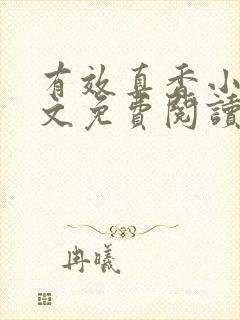 有效真香小
文免費閱讀
冉曦